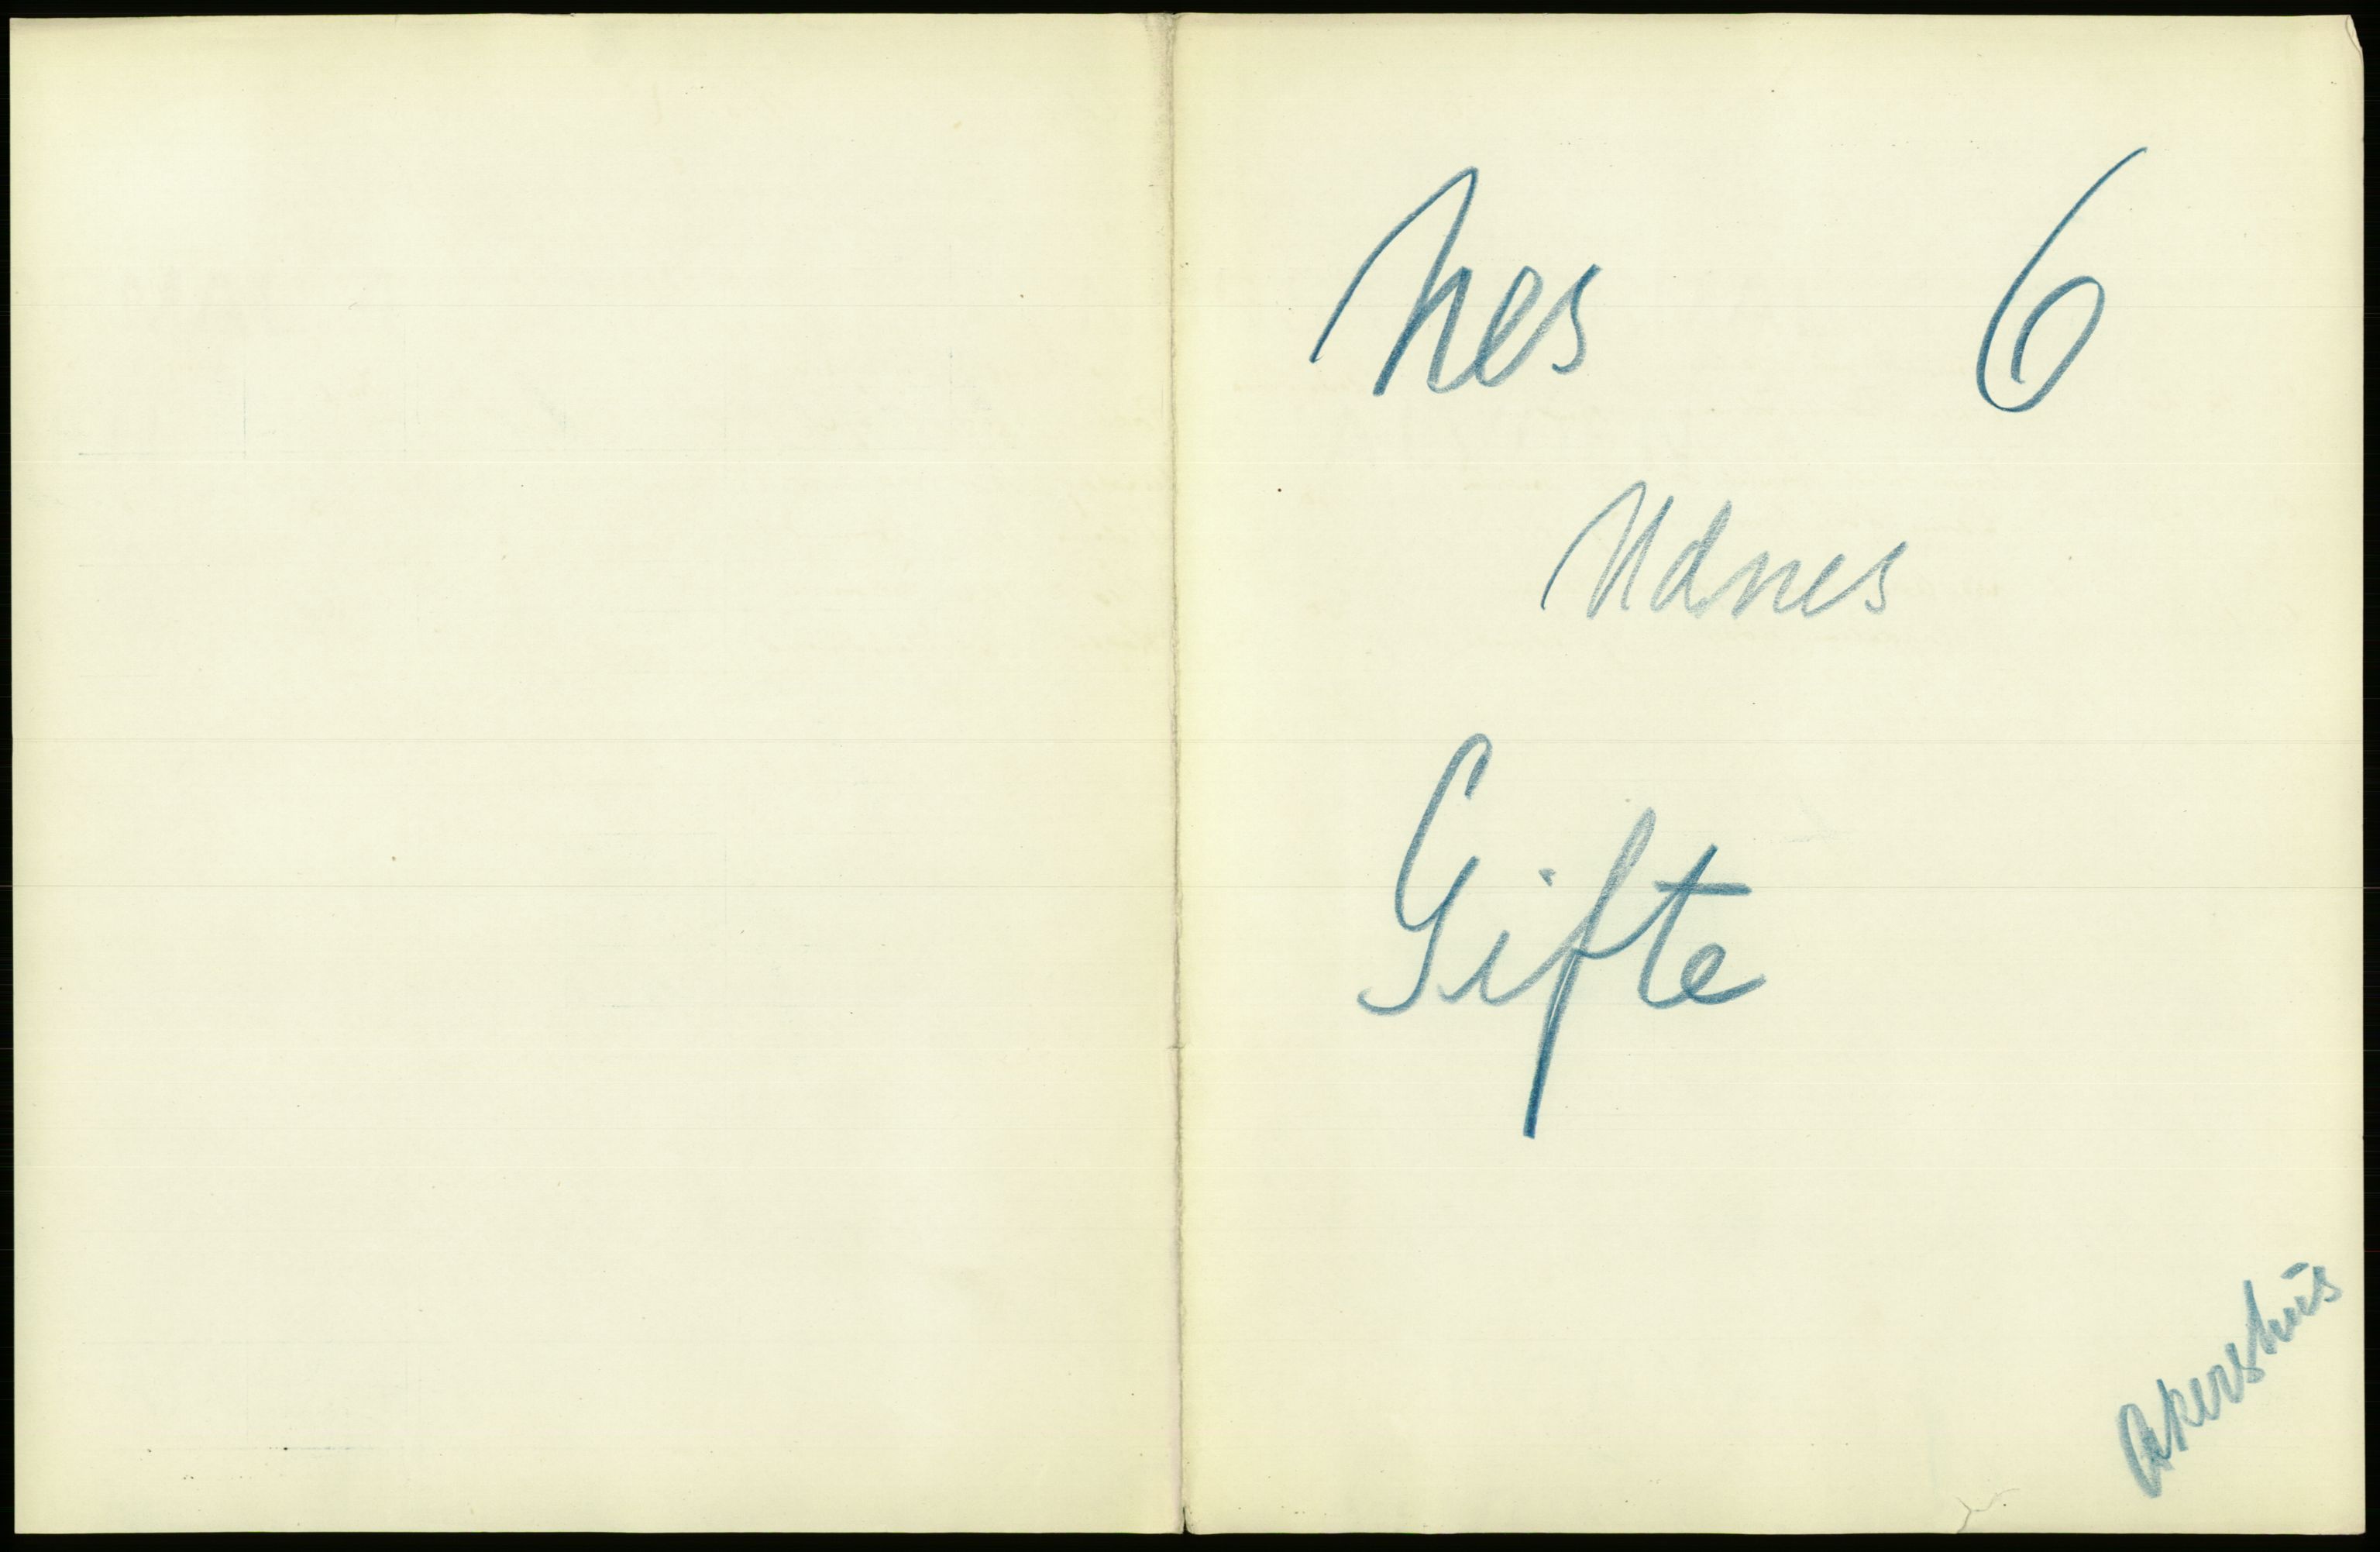 Nes 6
Udnes
Gifte
Akershus